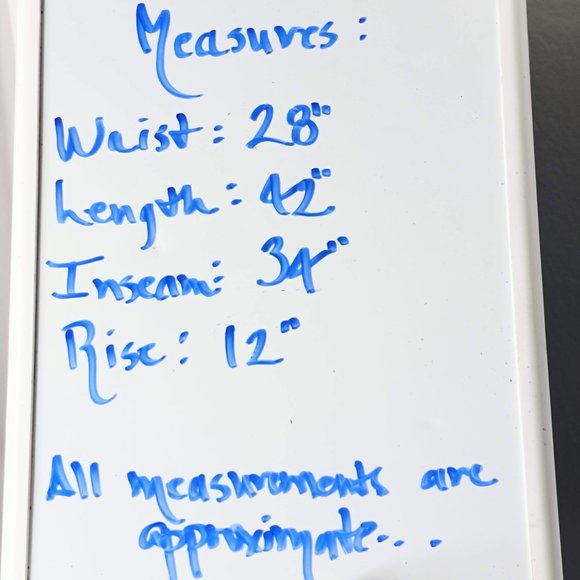 Measures:
Waist: 28"
Length: 42"
Inseam: 34"
Rise: 12"
All measurements are
approximate...